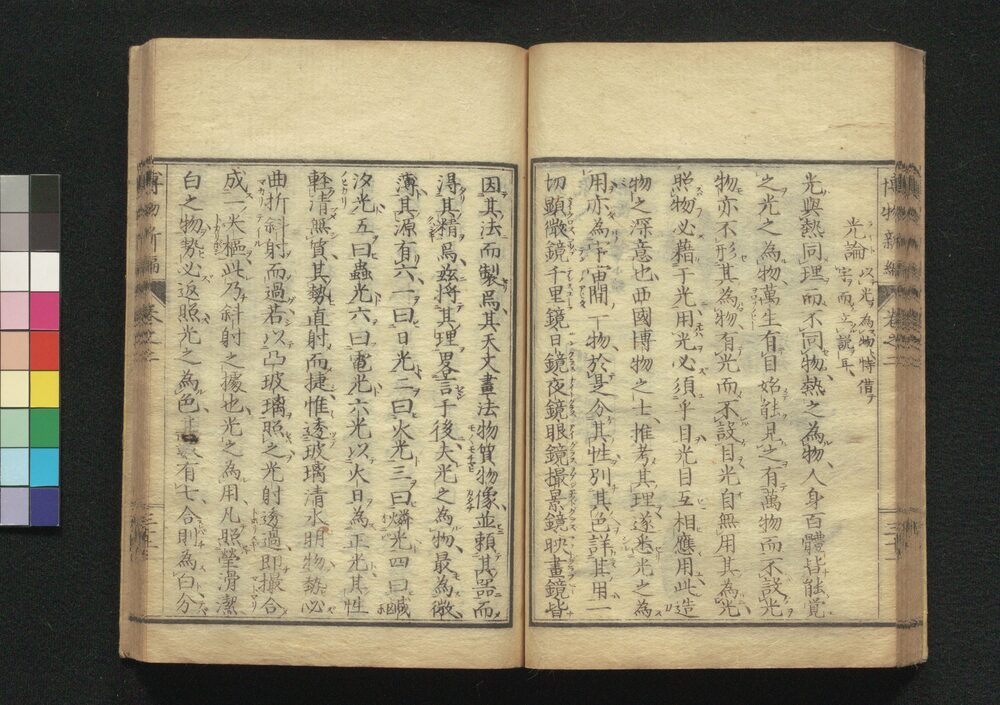 博物新編 卷之二 三十一
光論 以光為物特借字而立說耳
光與熱同理而不同物熱之為物人身百體皆能覺
之光之為物萬生有目始能見之有萬物而不設光
物亦不形其為物有光而不設目光自無用其為光
照物必藉于光用光必須乎目光目互相應用此造
物之深意也西國博物之士推考其理遂悉光之為
用亦為宇宙間一物於是分其性別其色詳其用一
切顯微鏡千里鏡日鏡夜鏡眼鏡撮景鏡映畫鏡皆
因其法而製焉其天文畫法物質物像並賴其器而
淂其精焉玆將其理畧言于後夫光之為物最為微
薄其源有六一曰日光二曰火光三曰燐光四曰鹹
汐光五曰蟲光六曰電光六光以火日為正光其性
輕清無質其勢直射而捷惟透玻璃清水明物勢必
曲折斜射而過若以凸玻璃照之光射透過即撮合
成一火樞此乃斜射之據也光之為用凡照瑩滑潔
白之物勢必返照光之為色其數有七合則為白分
博物新編 卷之二